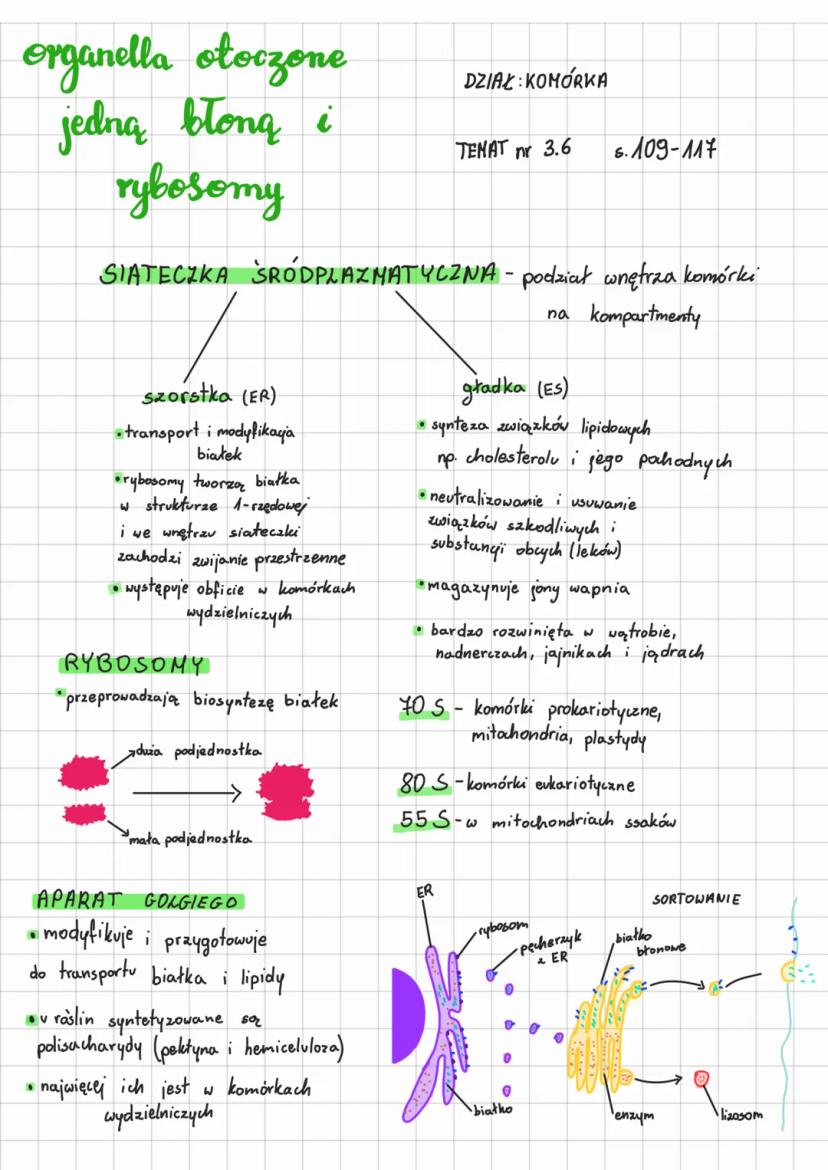 organella otoczone
jedną błoną i
rybosomy
DZIAŁ: KOMÓRKA
TEMAT nr 3.6 s. 109-117
SIATECZKA ŚRÓDPLAZMATYCZNA - podział wnętrza komórki
na kompartmenty
szorstka (ER)
• transport i modyfikacja
białek
• rybosomy tworzą białka
w strukturze 1-rzędowej
i we wnętrzu siateczki
zachodzi zwijanie przestrzenne
• występuje obficie w komórkach
wydzielniczych
gładka (ES)
• synteza związków lipidowych
np. cholesterolu i jego pochodnych
• neutralizowanie i usuwanie
związków szkodliwych i
substancji obcych (leków)
• magazynuje jony wapnia
• bardzo rozwinięta w wątrobie,
nadnerczach, jajnikach i jądrach
RYBOSOMY
• przeprowadzają biosyntezę białek
duża podjednostka
mała podjednostka
70 S - komórki prokariotyczne,
mitochondria, plastydy
80 S - komórki eukariotyczne
55 S - w mitochondriach ssaków
APARAT GOLGIEGO
• modyfikuje i przygotowuje
do transportu białka i lipidy
• u roślin syntetyzowane są
polisacharydy (pektyna i hemiceluloza)
• najwięcej ich jest w komórkach
wydzielniczych
ER
rybosom
pęcherzyk
z ER
białko
SORTOWANIE
białko
błonowe
enzym
lizosom